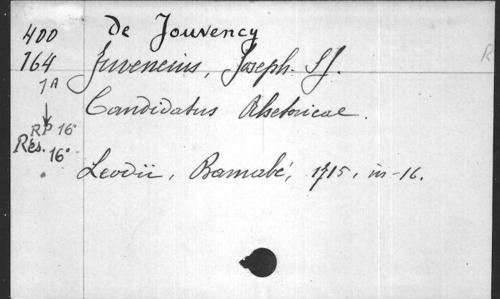 400 de Jouvency
164 Juvencius, Joseph. S.J.
1A
Candidatus Rhetoricae.
RP 16°
Rés. 16°
Leodii, Barnabé, 1715, in-16.
R